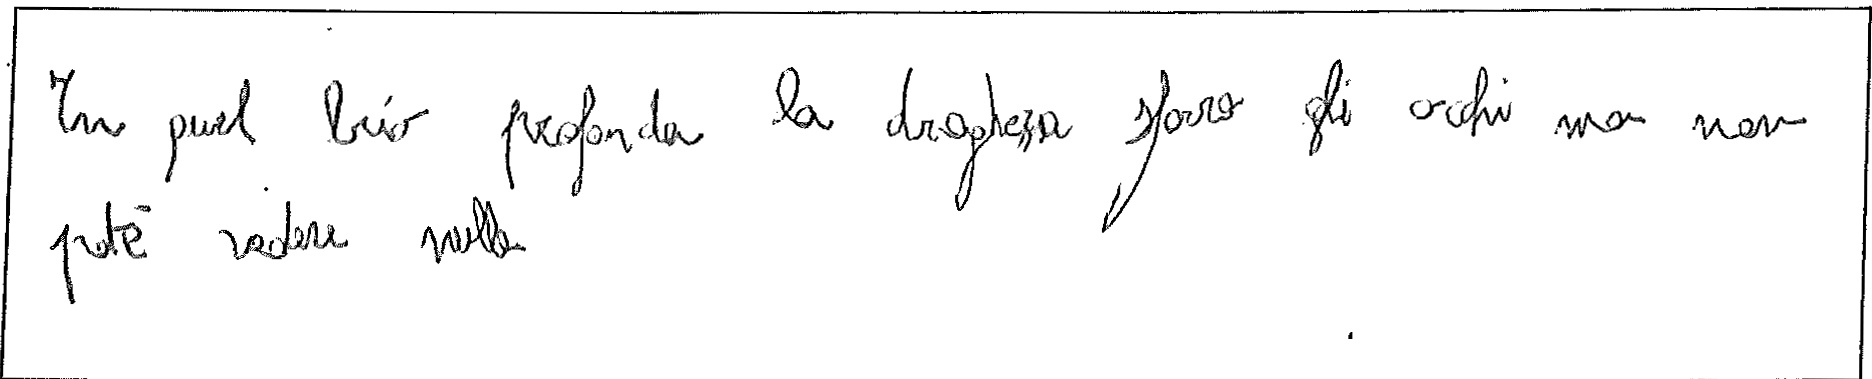 In quel buio profondo la draghezza sforzò gli occhi ma non
potè vedere nulla